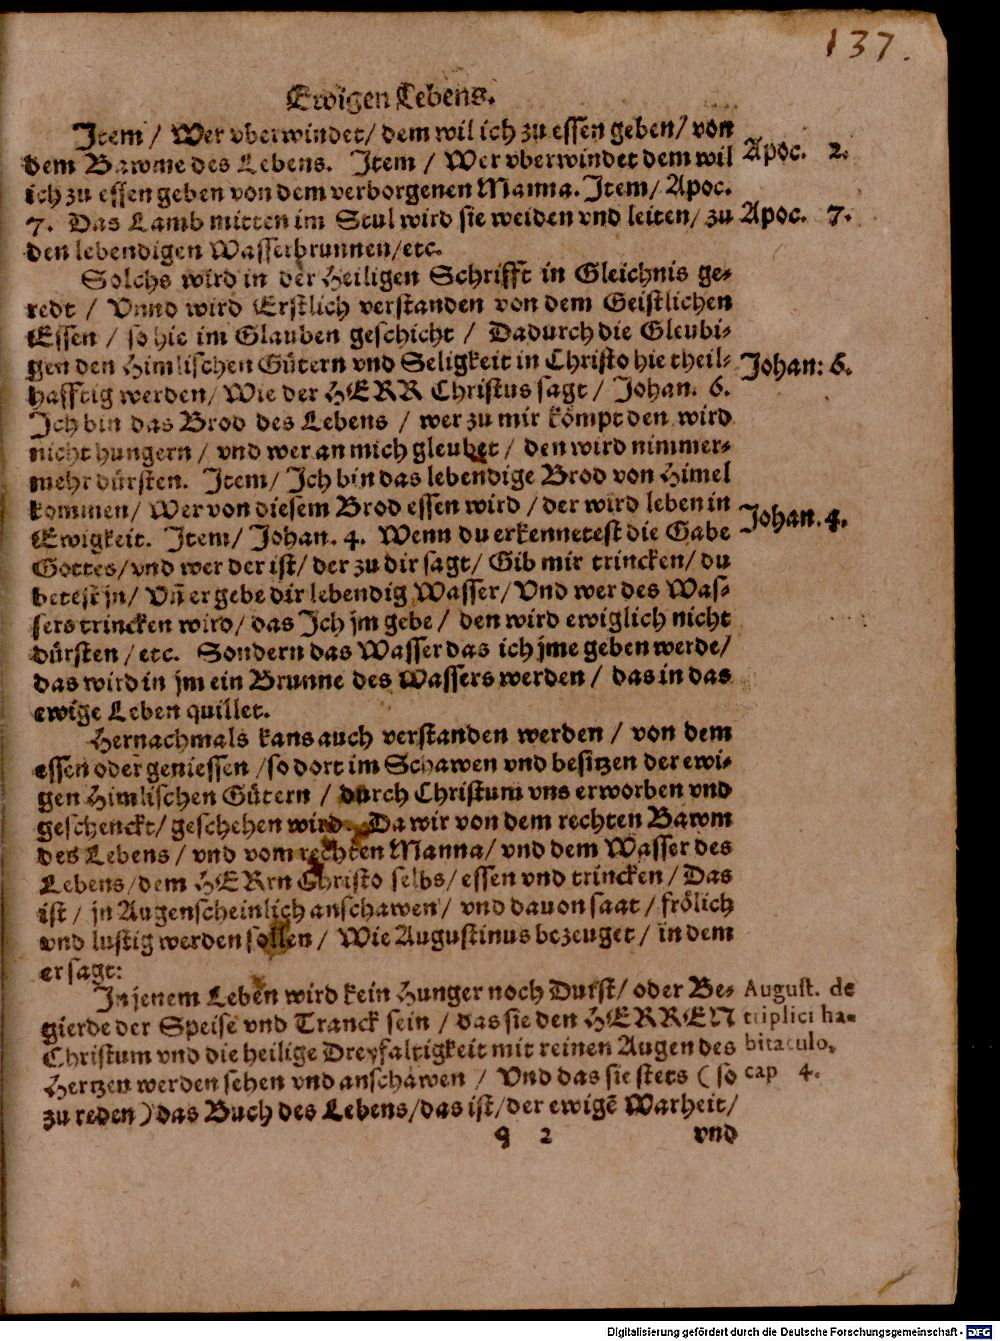 137.
Ewigen Lebens.
Item / Wer vberwindet / dem wil ich zu essen geben / von
dem Bawme des Lebens. Item / Wer vberwindet dem wil
Apoc. 2.
ich zu essen geben von dem verborgenen Manna. Item / Apoc.
7. Das Lamb mitten im Stul wird sie weiden vnd leiten / zu
Apoc. 7.
den lebendigen Wasserbrunnen / etc.
Solchs wird in der Heiligen Schrifft in Gleichnis ge-
redt / Vnnd wird Erstlich verstanden von dem Geistlichen
Essen / so hie im Glauben geschicht / Dadurch die Gleubi-
gen den Himlischen Gütern vnd Seligkeit in Christo hie theil-
Johan: 6.
hafftig werden / Wie der HERR Christus sagt / Johan. 6.
Ich bin das Brod des Lebens / wer zu mir kömpt den wird
nicht hungern / vnd wer an mich gleubet / den wird nimmer-
mehr dürsten. Item / Ich bin das lebendige Brod von Himel
kommen / Wer von diesem Brod essen wird / der wird leben in
Ewigkeit. Item / Johan. 4. Wenn du erkennetest die Gabe
Johan. 4.
Gottes / vnd wer der ist / der zu dir sagt / Gib mir trincken / du
betest jn / Vñ er gebe dir lebendig Wasser / Vnd wer des Was-
sers trincken wird / das Ich jm gebe / den wird ewiglich nicht
dürsten / etc. Sondern das Wasser das ich jme geben werde /
das wird in jm ein Brunne des Wassers werden / das in das
ewige Leben quillet.
Hernachmals kans auch verstanden werden / von dem
essen oder geniessen / so dort im Schawen vnd besitzen der ewi-
gen Himlischen Gütern / durch Christum vns erworben vnd
geschenckt / geschehen wird. Da wir von dem rechten Bawm
des Lebens / vnd vom rechten Manna / vnd dem Wasser des
Lebens / dem HERrn Christo selbs / essen vnd trincken / Das
ist / jn Augenscheinlich anschawen / vnd dauon saat / frölich
vnd lustig werden sollen / Wie Augustinus bezeuget / in dem
er sagt:
In jenem Leben wird kein Hunger noch Durst / oder Be-
gierde der Speise vnd Tranck sein / das sie den HERREN
Christum vnd die heilige Dreyfaltigkeit mit reinen Augen des
Hertzen werden sehen vnd anschawen / Vnd das sie stets ( so
zu reden ) das Buch des Lebens / das ist / der ewigē Warheit /
August. de
triplici ha-
bitaculo.
cap 4.
q 2 vnd
Digitalisierung gefördert durch die Deutsche Forschungsgemeinschaft - DFG